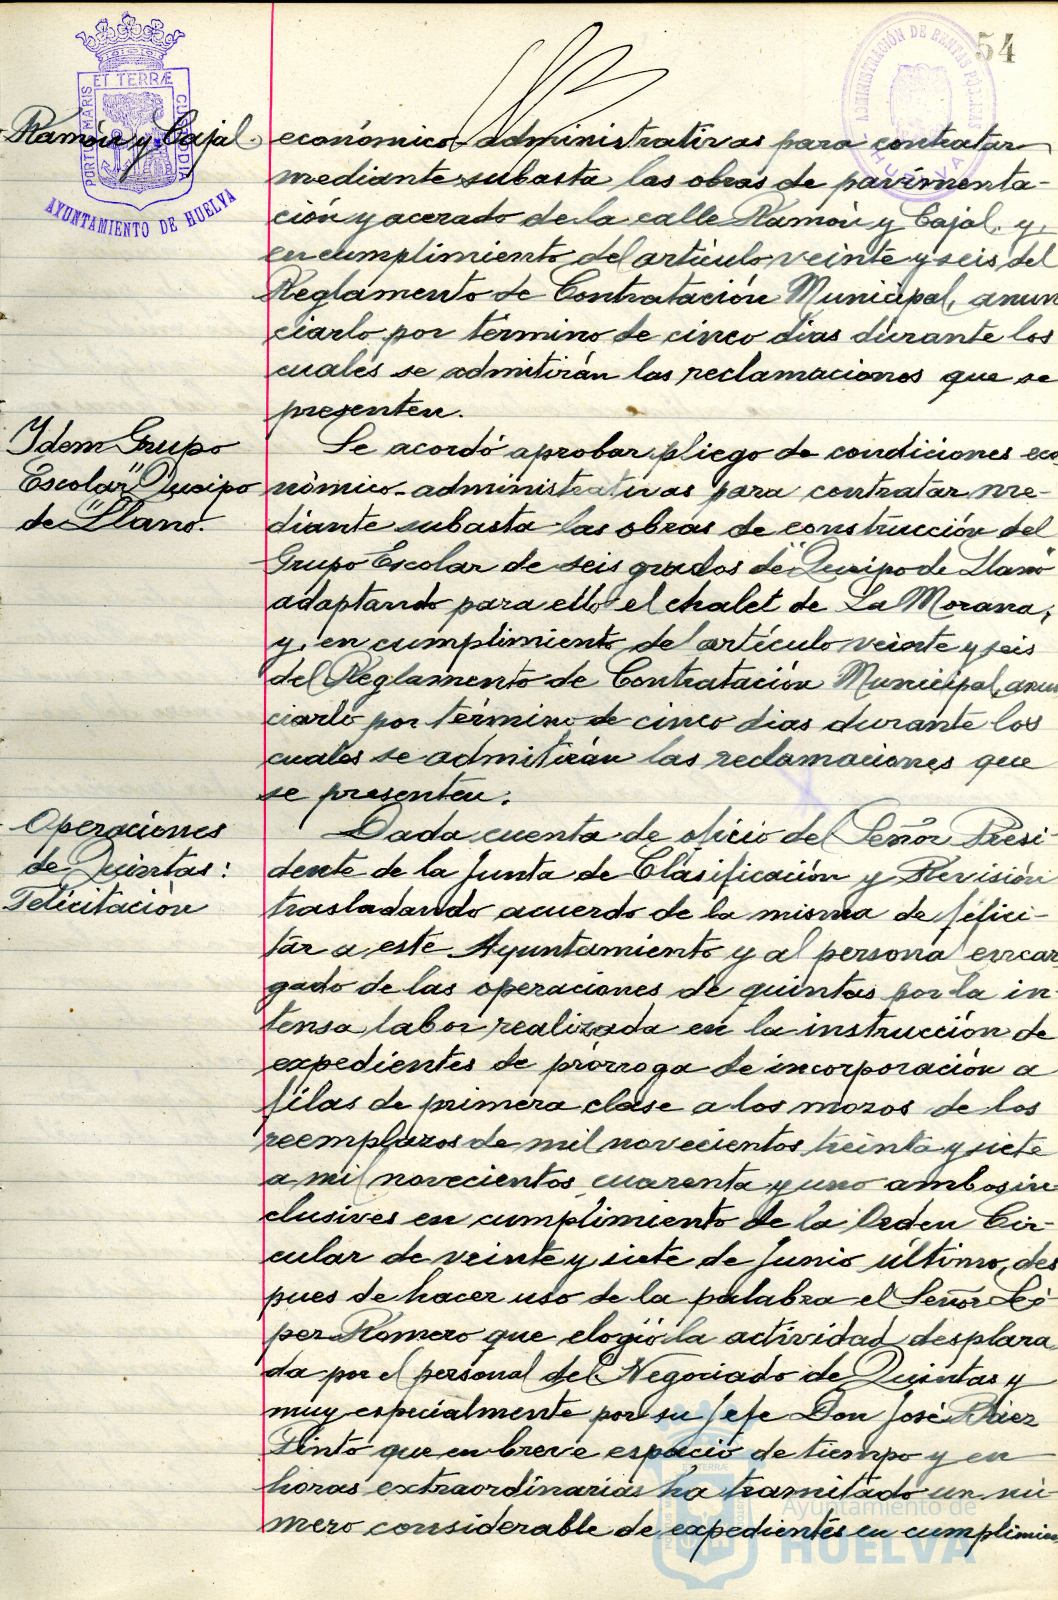 54
ET TERRÆ
PORTUS MARIS
CUSTODIA
AYUNTAMIENTO DE HUELVA
ADMINISTRACIÓN DE RENTAS PÚBLICAS
HUELVA
Ramón y Cajal.
económico-administrativas para contratar
mediante subasta las obras de pavimenta-
ción y acerado de la calle Ramón y Cajal, y,
en cumplimiento del artículo veinte y seis del
Reglamento de Contratación Municipal, anun
ciarlo por término de cinco dias durante los
cuales se admitirán las reclamaciones que se
presenten.
Idem Grupo
Escolar "Queipo
de Llano".
Se acordó aprobar pliego de condiciones eco
nómico-administrativas para contratar me-
diante subasta las obras de construcción del
Grupo Escolar de seis grados de "Queipo de Llano"
adaptando para ello el chalet de La Morana,
y, en cumplimiento del artículo veinte y seis
del Reglamento de Contratación Municipal, anun
ciarlo por término de cinco dias durante los
cuales se admitirán las reclamaciones que
se presenten.
Operaciones
de Quintas:
Felicitación
Dada cuenta de oficio del Señor Presi-
dente de la Junta de Clasificación y Revisión
trasladando acuerdo de la misma de felici-
tar a este Ayuntamiento y al personal encar
gado de las operaciones de quintas por la in-
tensa labor realizada en la instrucción de
expedientes de prórroga de incorporación a
filas de primera clase a los mozos de los
reemplazos de mil novecientos treinta y siete
a mil novecientos cuarenta y uno ambos in
clusives en cumplimiento de la Orden Cir-
cular de veinte y siete de Junio último, des
pues de hacer uso de la palabra el Señor Ló
pez Romero que elogió la actividad desplaza
da por el personal del Negociado de Quintas y
muy especialmente por su Jefe Don José Báez
Pinto que en breve espacio de tiempo y en
horas extraordinarias ha tramitado un nú-
mero considerable de expedientes en cumplimien
Ayuntamiento de
HUELVA